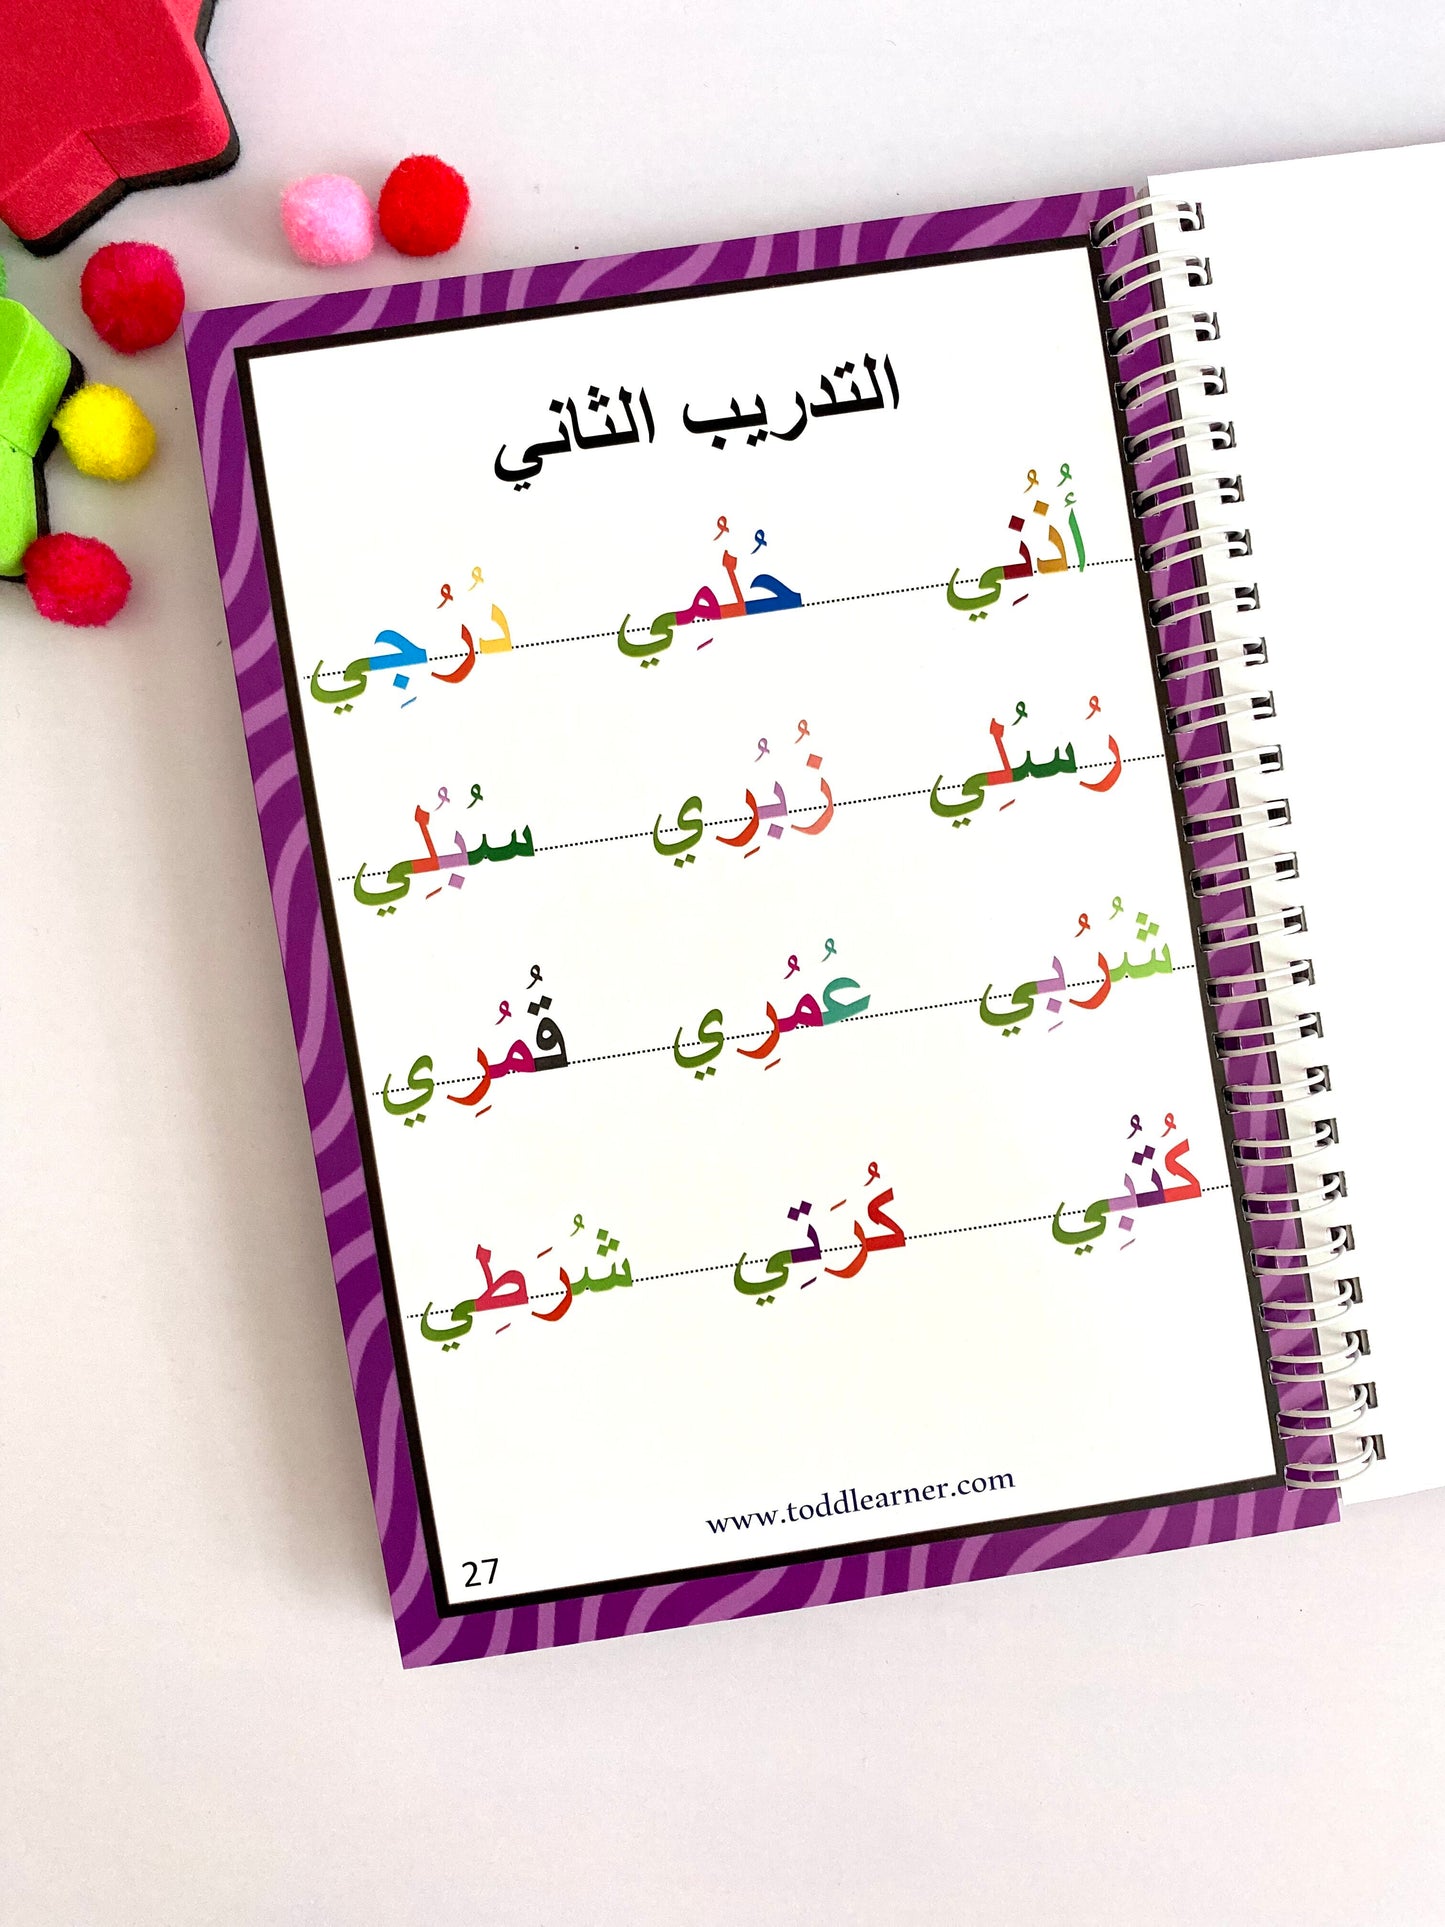 التدريب الثاني
أُذُنِي حُلُمِي دُرُجِي
رُسُلِي زُبُرِي سُبُلِي
شُرُبِي عُمُرِي قُمُرِي
كُتُبِي كُرَتِي شُرَطِي
www.toddlearner.com
27